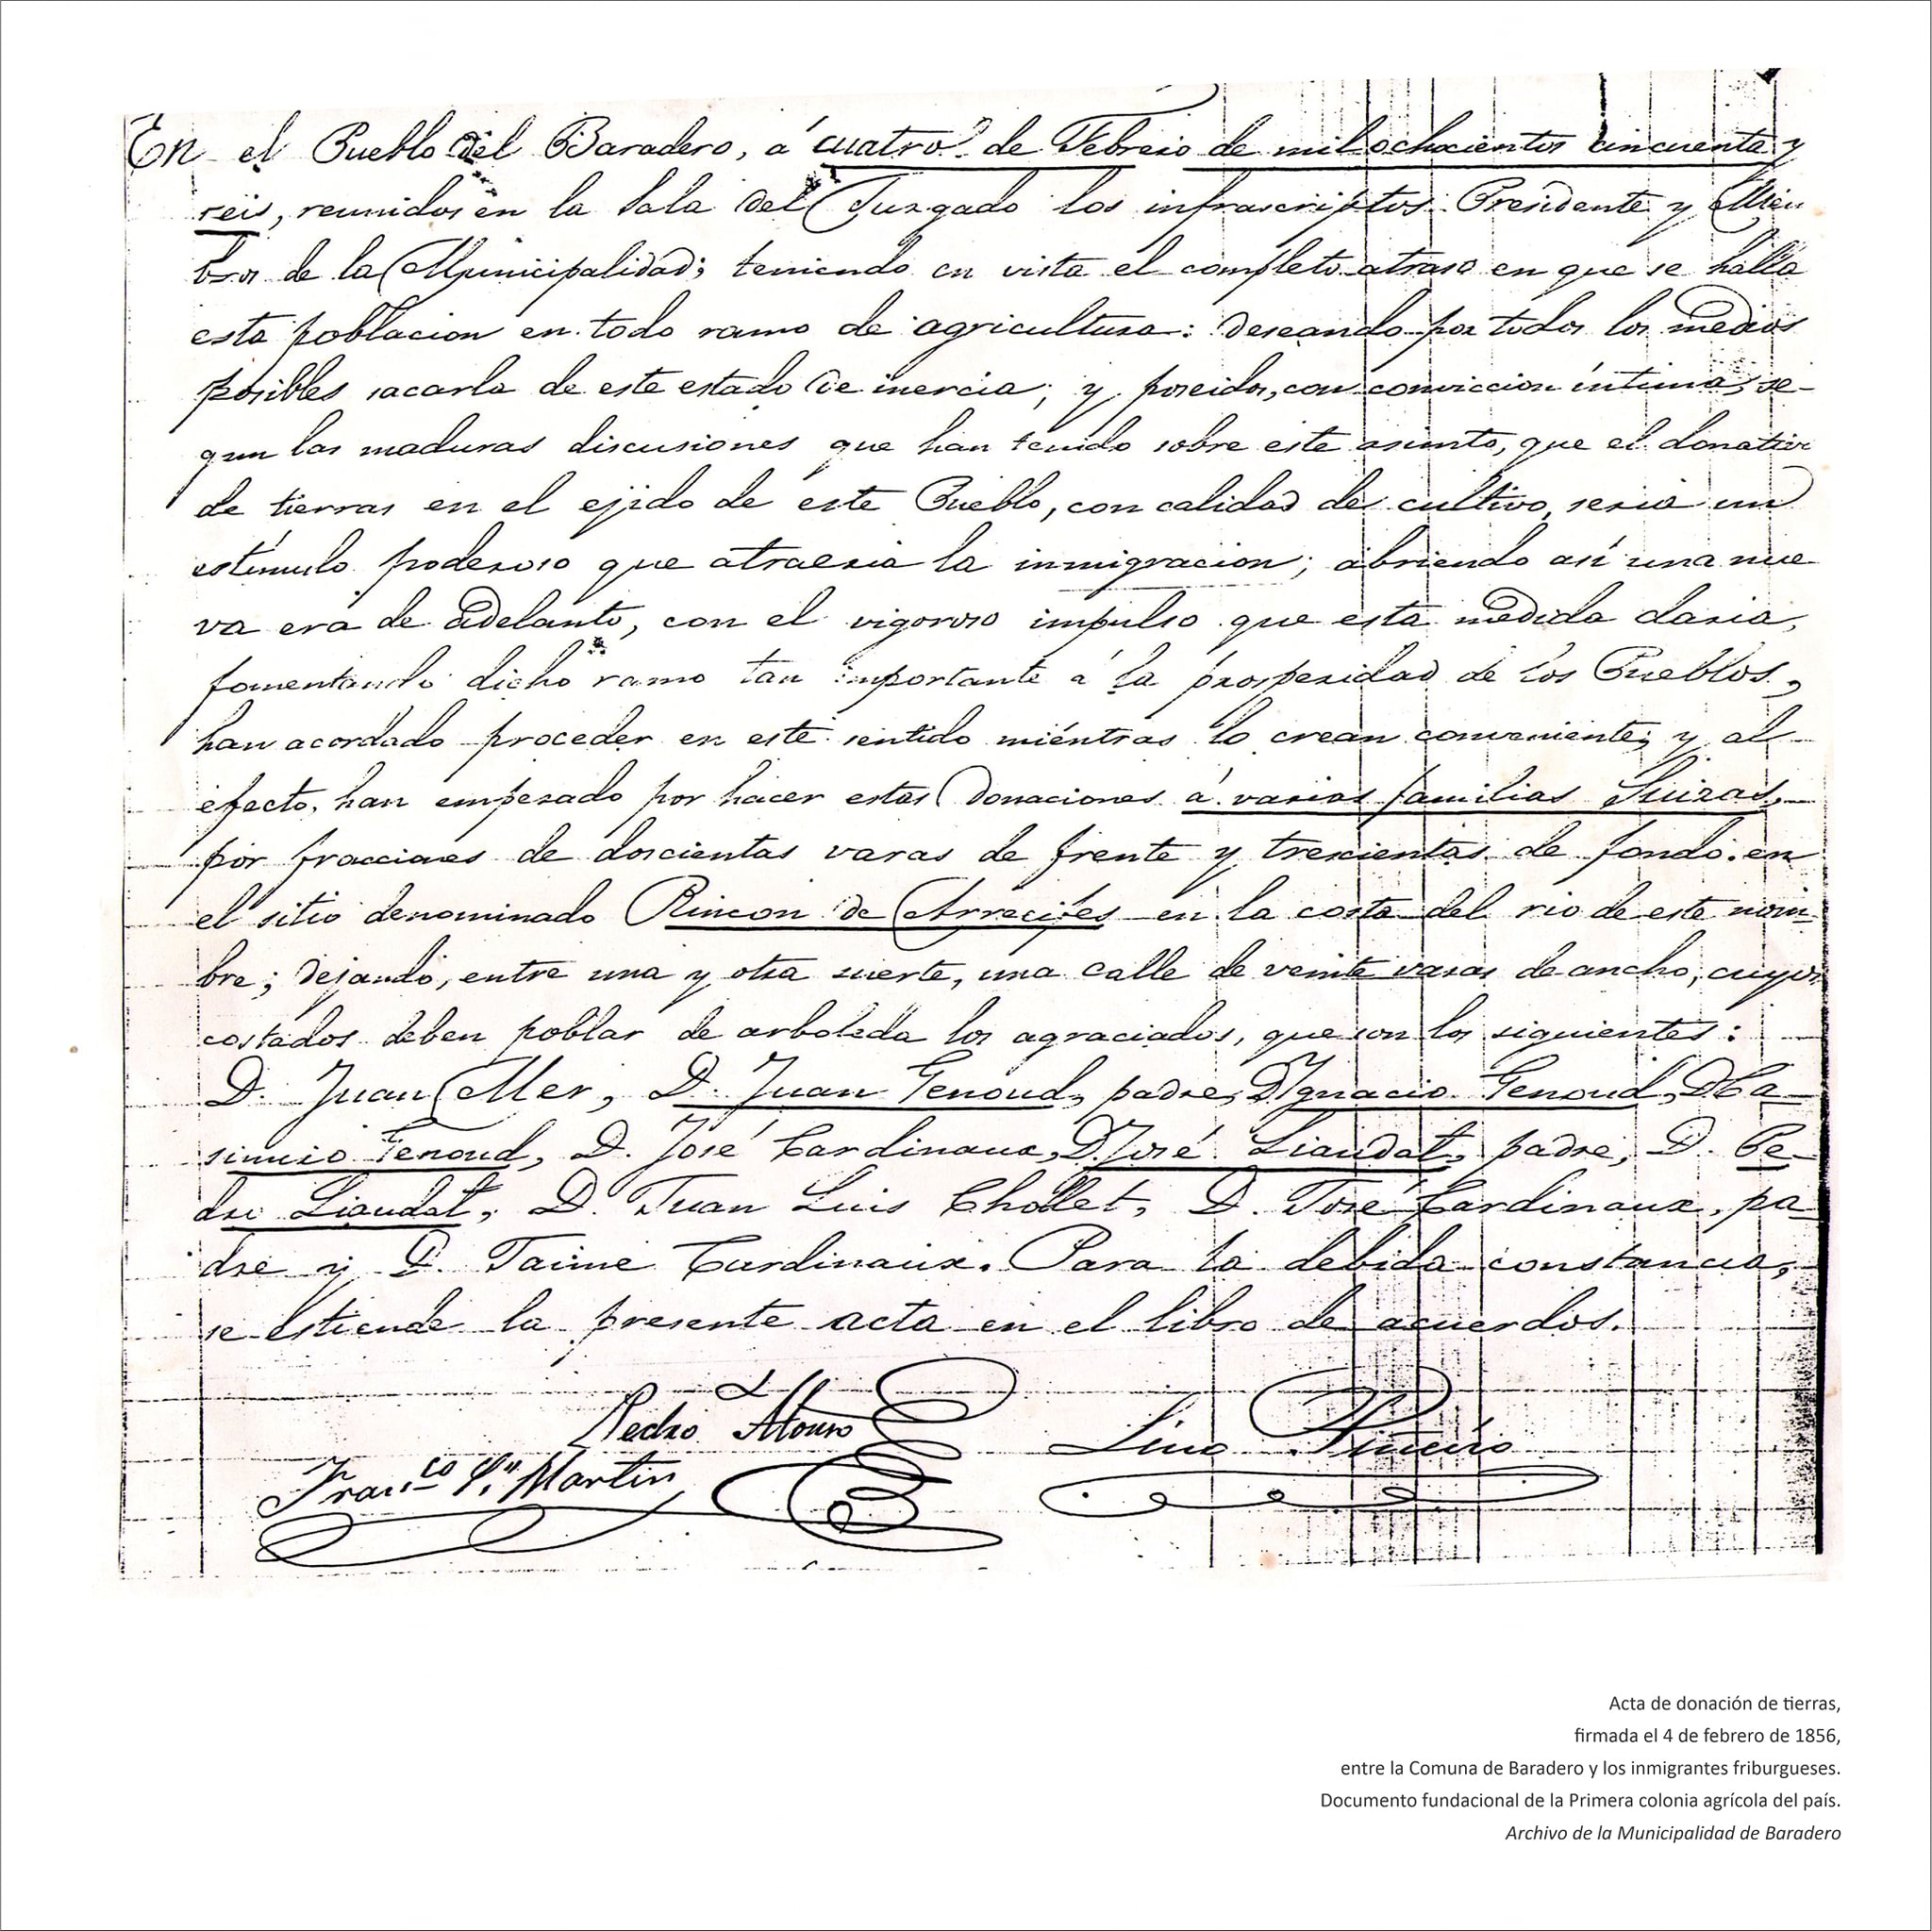 En el Pueblo del Baradero, á cuatro de Febrero de mil ochocientos cincuenta y
seis, reunidos en la Sala del Juzgado los infrascriptos Presidente y Miem
bros de la Municipalidad; teniendo en vista el completo atraso en que se halla
esta poblacion en todo ramo de agricultura: deseando por todos los medios
posibles sacarla de este estado de inercia; y poseidos, con conviccion íntima, se-
gun las maduras discusiones que han tenido sobre este asunto, que el donativo
de tierras en el ejido de este Pueblo, con calidad de cultivo, seria un
estímulo poderoso que atraeria la inmigracion; abriendo así una nue
va era de adelanto, con el vigoroso impulso que esta medida daria,
fomentando dicho ramo tan importante á la prosperidad de los Pueblos,
han acordado proceder en este sentido miéntras lo crean conveniente; y al
efecto, han empezado por hacer estas donaciones á varias familias Suizas,
por fracciones de doscientas varas de frente y trescientas de fondo en
el sitio denominado Rincon de Arrecifes en la costa del rio de este nom-
bre; dejando, entre una y otra suerte, una calle de veinte varas de ancho, cuyos
costados deben poblar de arboleda los agraciados, que son los siguientes:
D. Juan Mer, D. Juan Genoud, padre, D. Ygnacio Genoud, D. Ca-
simiro Genoud, D. José Cardinaux, D. José Liaudat, padre, D. Pe-
dro Liaudat, D. Juan Luis Chollet, D. José Cardinaux, pa-
dre y D. Jaime Cardinaux. Para la debida constancia,
se estiende la presente acta en el libro de acuerdos.
Pedro Alonso
Lino Piñeiro
Fran.co Sn. Martin
Acta de donación de tierras,
firmada el 4 de febrero de 1856,
entre la Comuna de Baradero y los inmigrantes friburgueses.
Documento fundacional de la Primera colonia agrícola del país.
Archivo de la Municipalidad de Baradero